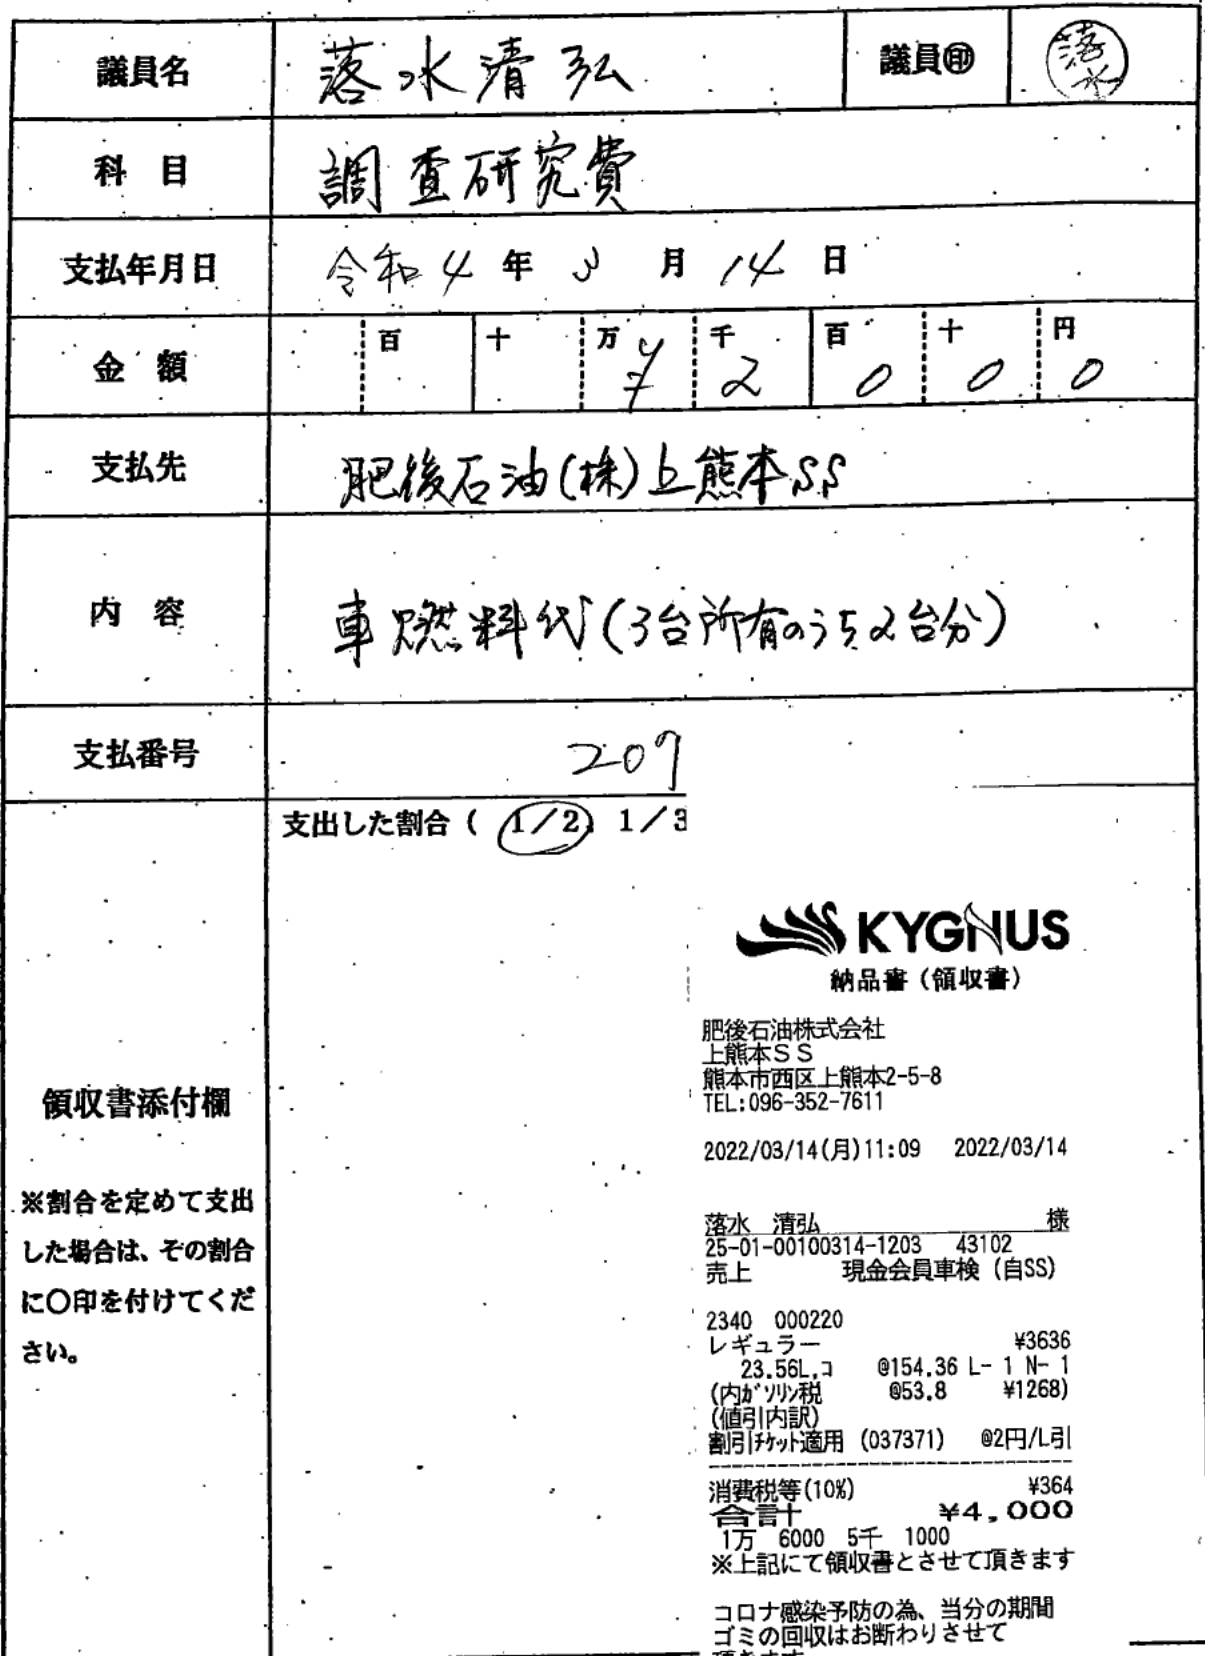 議員名 落水清弘 議員㊞ 落水
科 目 調査研究費
支払年月日 令和4年3月14日
金 額 百 十 万 ¥ 千 2 百 0 十 0 円 0
支払先 肥後石油(株)上熊本SS
内 容 車燃料代(3台所有のうち2台分)
支払番号 207
支出した割合( 1/2) 1/3
領収書添付欄
※割合を定めて支出
した場合は、その割合
に〇印を付けてくだ
さい。
KYGNUS
納品書(領収書)
肥後石油株式会社
上熊本SS
熊本市西区上熊本2-5-8
TEL:096-352-7611
2022/03/14(月)11:09 2022/03/14
落水 清弘 様
25-01-00100314-1203 43102
売上 現金会員車検(自SS)
2340 000220
レギュラー ¥3636
23.56L,コ @154.36 L- 1 N- 1
(内ガソリン税 @53.8 ¥1268)
(値引内訳)
割引チケット適用(037371) @2円/L引
消費税等(10%) ¥364
合計 ¥4,000
1万 6000 5千 1000
※上記にて領収書とさせて頂きます
コロナ感染予防の為、当分の期間
ゴミの回収はお断わりさせて
頂きます